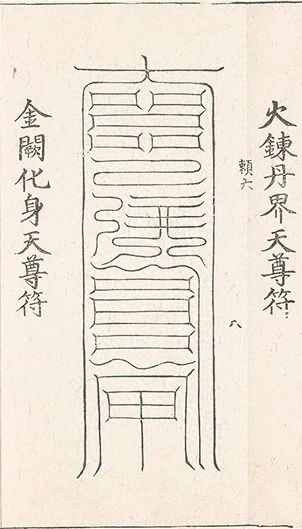 火鍊丹界天尊符
頼六
八
金闕化身天尊符